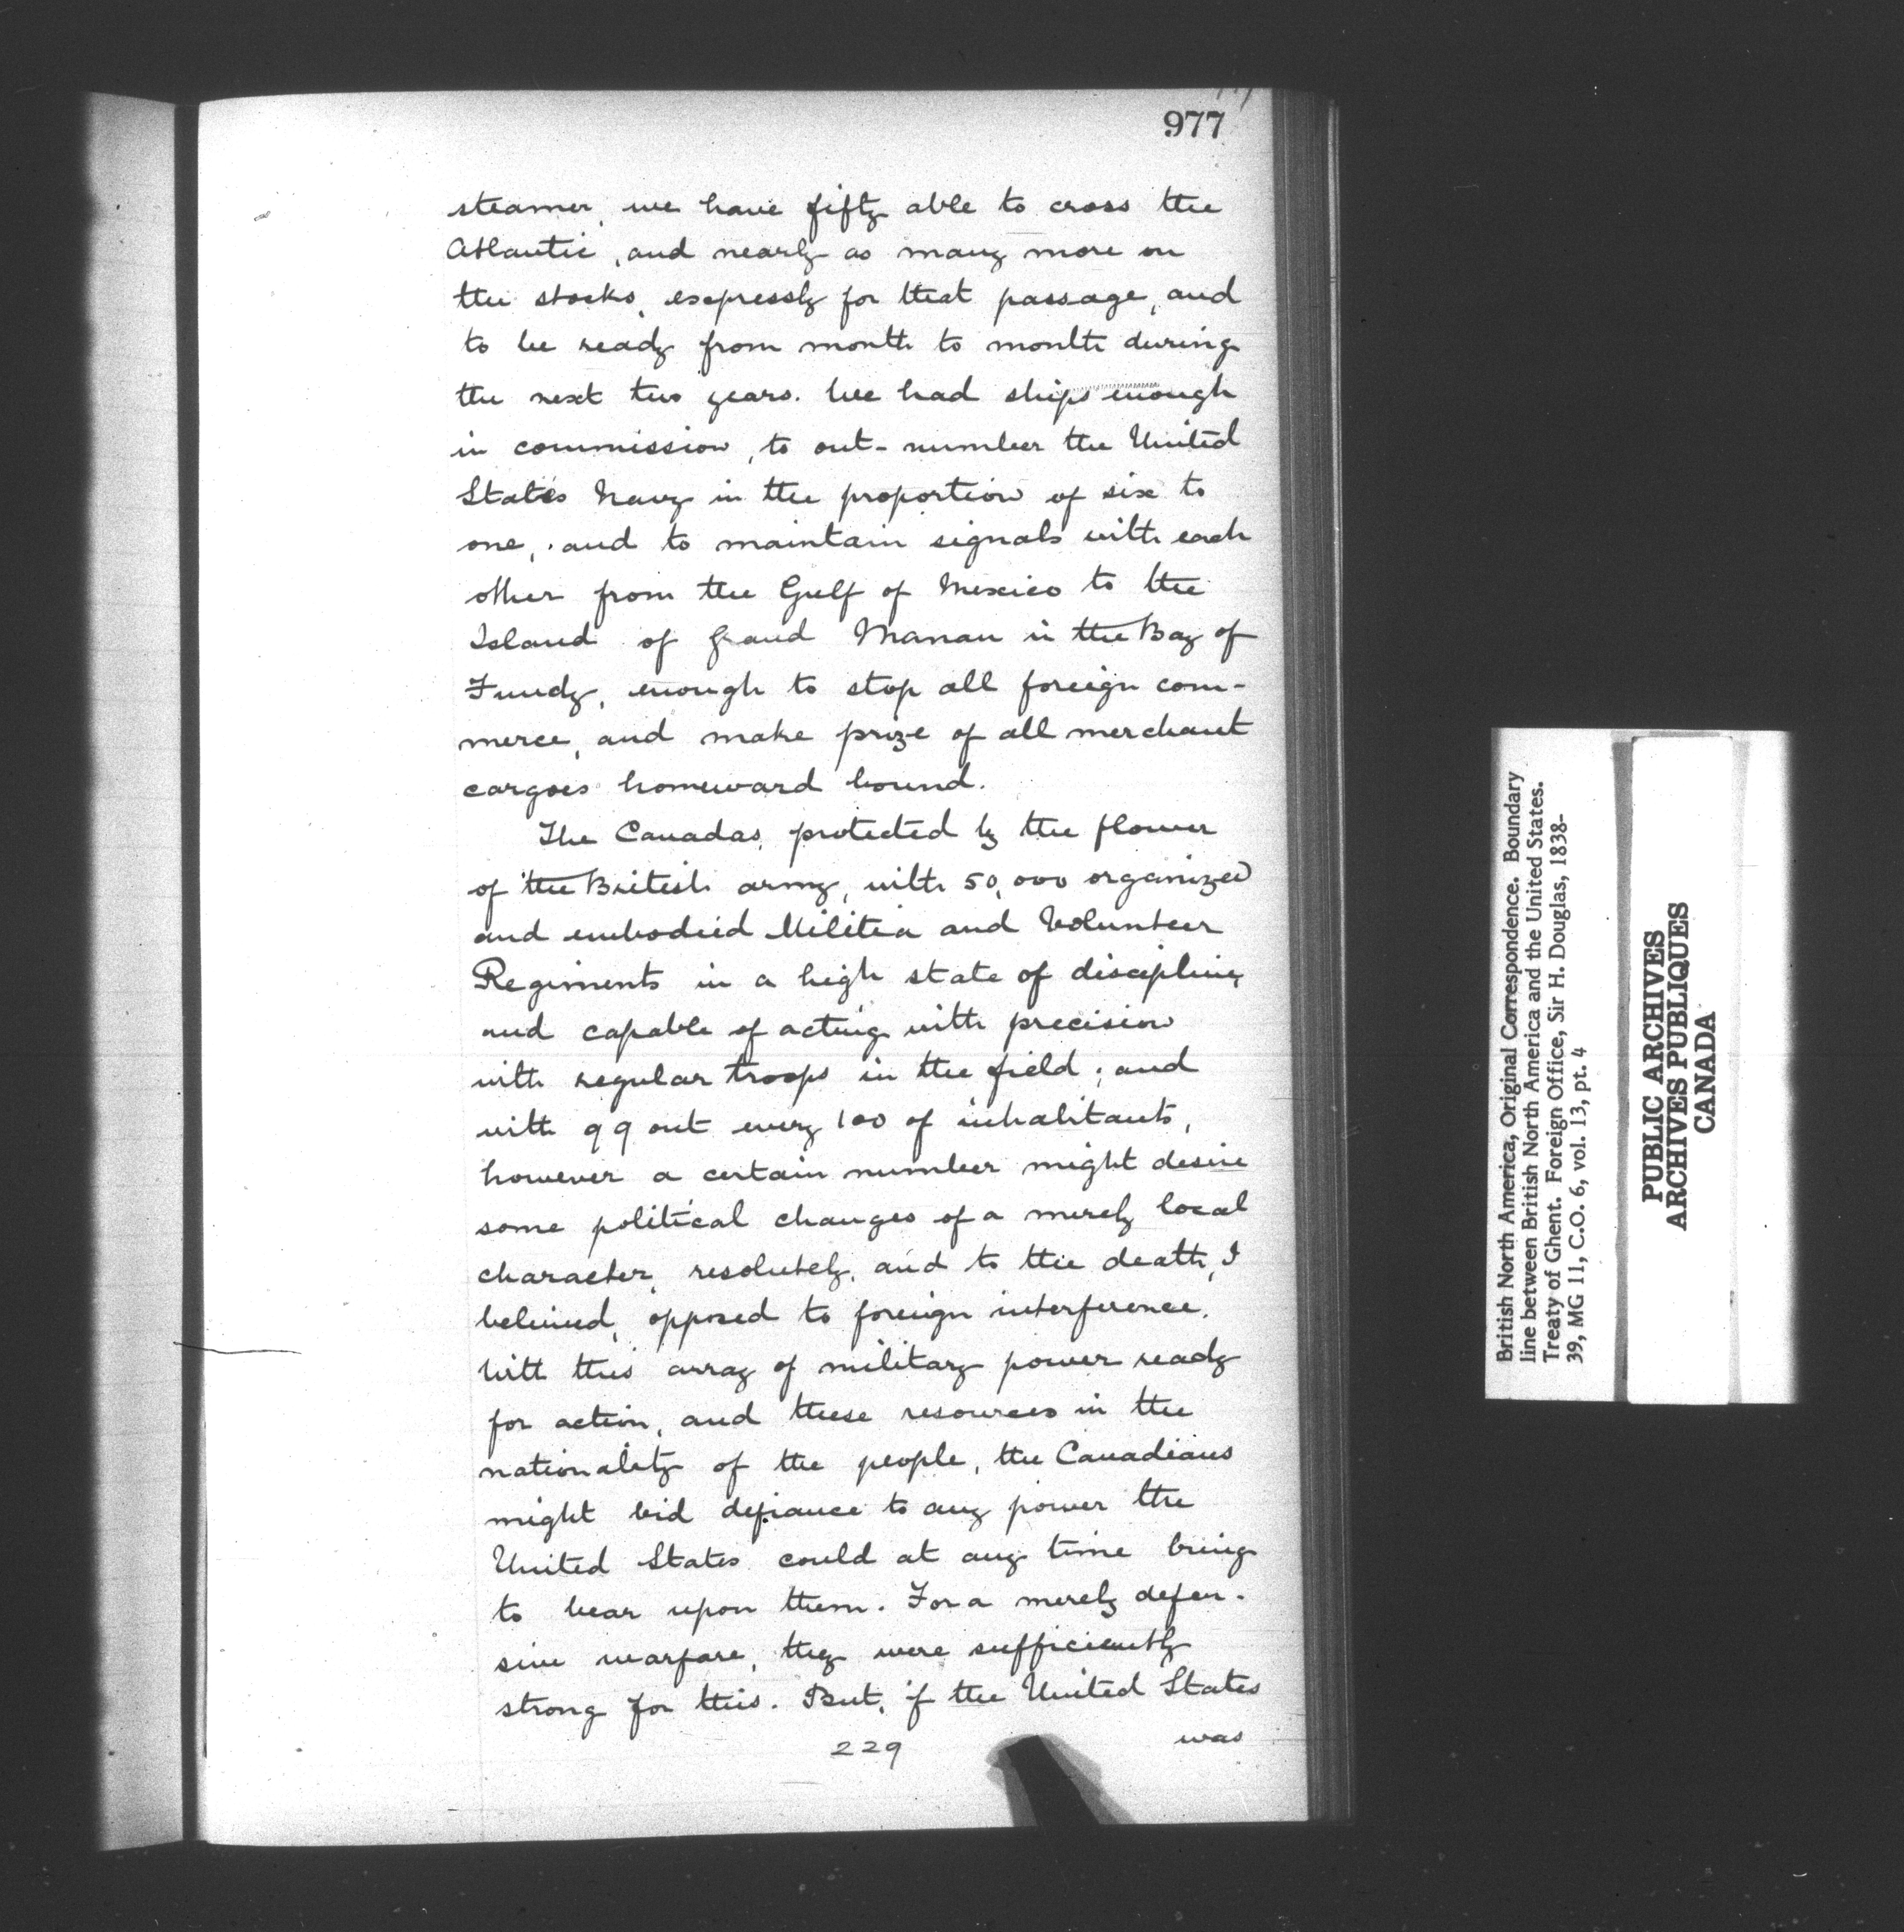 977
steamer, we have fifty able to cross the
Atlantic, and nearly as many more on
the stocks, expressly for that passage, and
to be ready from month to month during
the next two years. We had ships enough
in commission, to out-number the United
States Navy in the proportion of six to
one, and to maintain signals with each
other from the Gulf of Mexico to the
Island of Grand Manan in the Bay of
Fundy, enough to stop all foreign com-
merce, and make prize of all merchant
cargoes homeward bound.
The Canadas, protected by the flower
of the British army, with 50,000 organized
and embodied Militia and Volunteer
Regiments in a high state of discipline,
and capable of acting with precision
with regular troops in the field; and
with 99 out every 100 of inhabitants,
however a certain number might desire
some political changes of a merely local
character, resolutely, and to the death, I
believed, opposed to foreign interference.
With this array of military power ready
for action, and these resources in the
nationality of the people, the Canadians
might bid defiance to any power the
United States could at any time bring
to bear upon them. For a merely defen-
sive warfare, they were sufficiently
strong for this. But, if the United States
229
was
British North America, Original Correspondence. Boundary
line between British North America and the United States.
Treaty of Ghent. Foreign Office, Sir H. Douglas, 1838-
39, MG 11, C.O. 6, vol. 13, pt. 4
PUBLIC ARCHIVES
ARCHIVES PUBLIQUES
CANADA